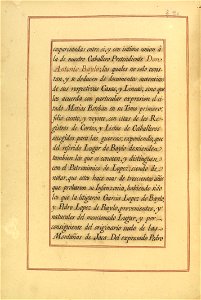 emparentadas entre si, y con intima union á
la de nuestro Caballero Pretendiente Don
Antonio Bayle; las quales no solo cons-
tan, y se deducen de documentos autenticos
de sus respectivas Casas, y Lineas, sino que
las acuerda con particular expresion el ci-
tado Matias Esteban en su Tomo primero,
folio ciento, y veynte, con citas de los Re-
gistros de Cortes, y Listas de Caballeros
escogidos para las guerras, exponiendo, que
del referido Lugar de Baylo descienden
tambien los que se conocen, y distinguen
con el Patronimico de Lopez, siendo de
notar, que estos hace mas de trescientos años
que probaron su Infanzonia, habiendo sido
los que la litigaron Garcia Lopez de Baylo,
y Pedro Lopez de Baylo, provenientes, y
naturales del mencionado Lugar, y por
consiguiente del originario suelo de las
Montañas de Jaca. Del expresado Pedro